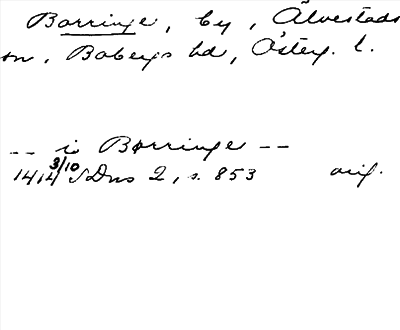 Borringe, by, Älvestads
sn, Bobergs hd, Österg. l.
-- i Borringe --
1414 3/10 SDns 2, s. 853 orig.